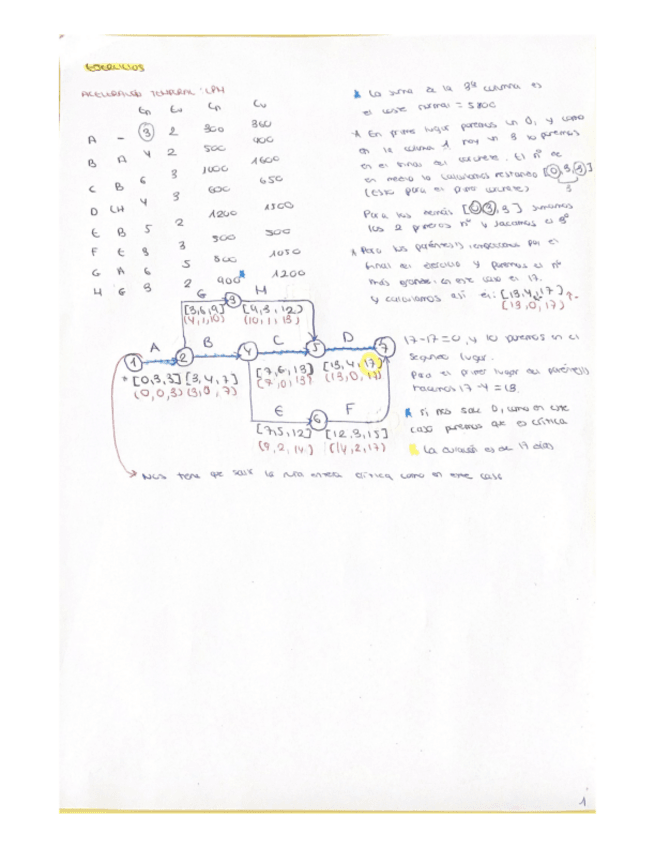 EJERCICIOS
ACELERACIÓN TEMPORAL: CPM
tn tu Cn Cu
A - 3 2 300 360
B A 4 2 500 900
C B 6 3 1000 1600
D CH 4 3 600 650
E B 5 2 1200 1500
F E 3 3 500 500
G A 6 5 800 1050
H G 3 2 900 1200
★ La suma de la 3ª columna es
el coste normal = 5800
★ En primer lugar ponemos un 0, y como
en la columna 1 hay un 3 lo ponemos
en el final del corchete. El nº de
en medio lo calculamos restando [0,3,3]
(esto para el primer corchete) 3
Para los demás [0,3,3] sumamos
los 2 primeros nº y sacamos el 3º
★ Para los paréntesis empezamos por el
final del dibujo y ponemos el nº
más grande, en este caso el 17.
y calculamos así el: [13,4,17]
(13,0,17)
17-17=0, y lo ponemos en el
segundo lugar.
Para el primer lugar del paréntesis
hacemos 17-4=13.
★ Si nos sale 0, como en este
caso ponemos que es crítica
La duración es de 17 días
G 3 H
[3,6,9] [9,3,12]
(4,1,10) (10,1,13)
1 A 2 B 4 C 5 D 7
* [0,3,3] [3,4,7] [7,6,13] [13,4,17]
(0,0,3) (3,0,7) (7,0,13) (13,0,17)
E 6 F
[7,5,12] [12,3,15]
(9,2,14) (14,2,17)
Nos tiene que salir la ruta entera crítica como en este caso
1